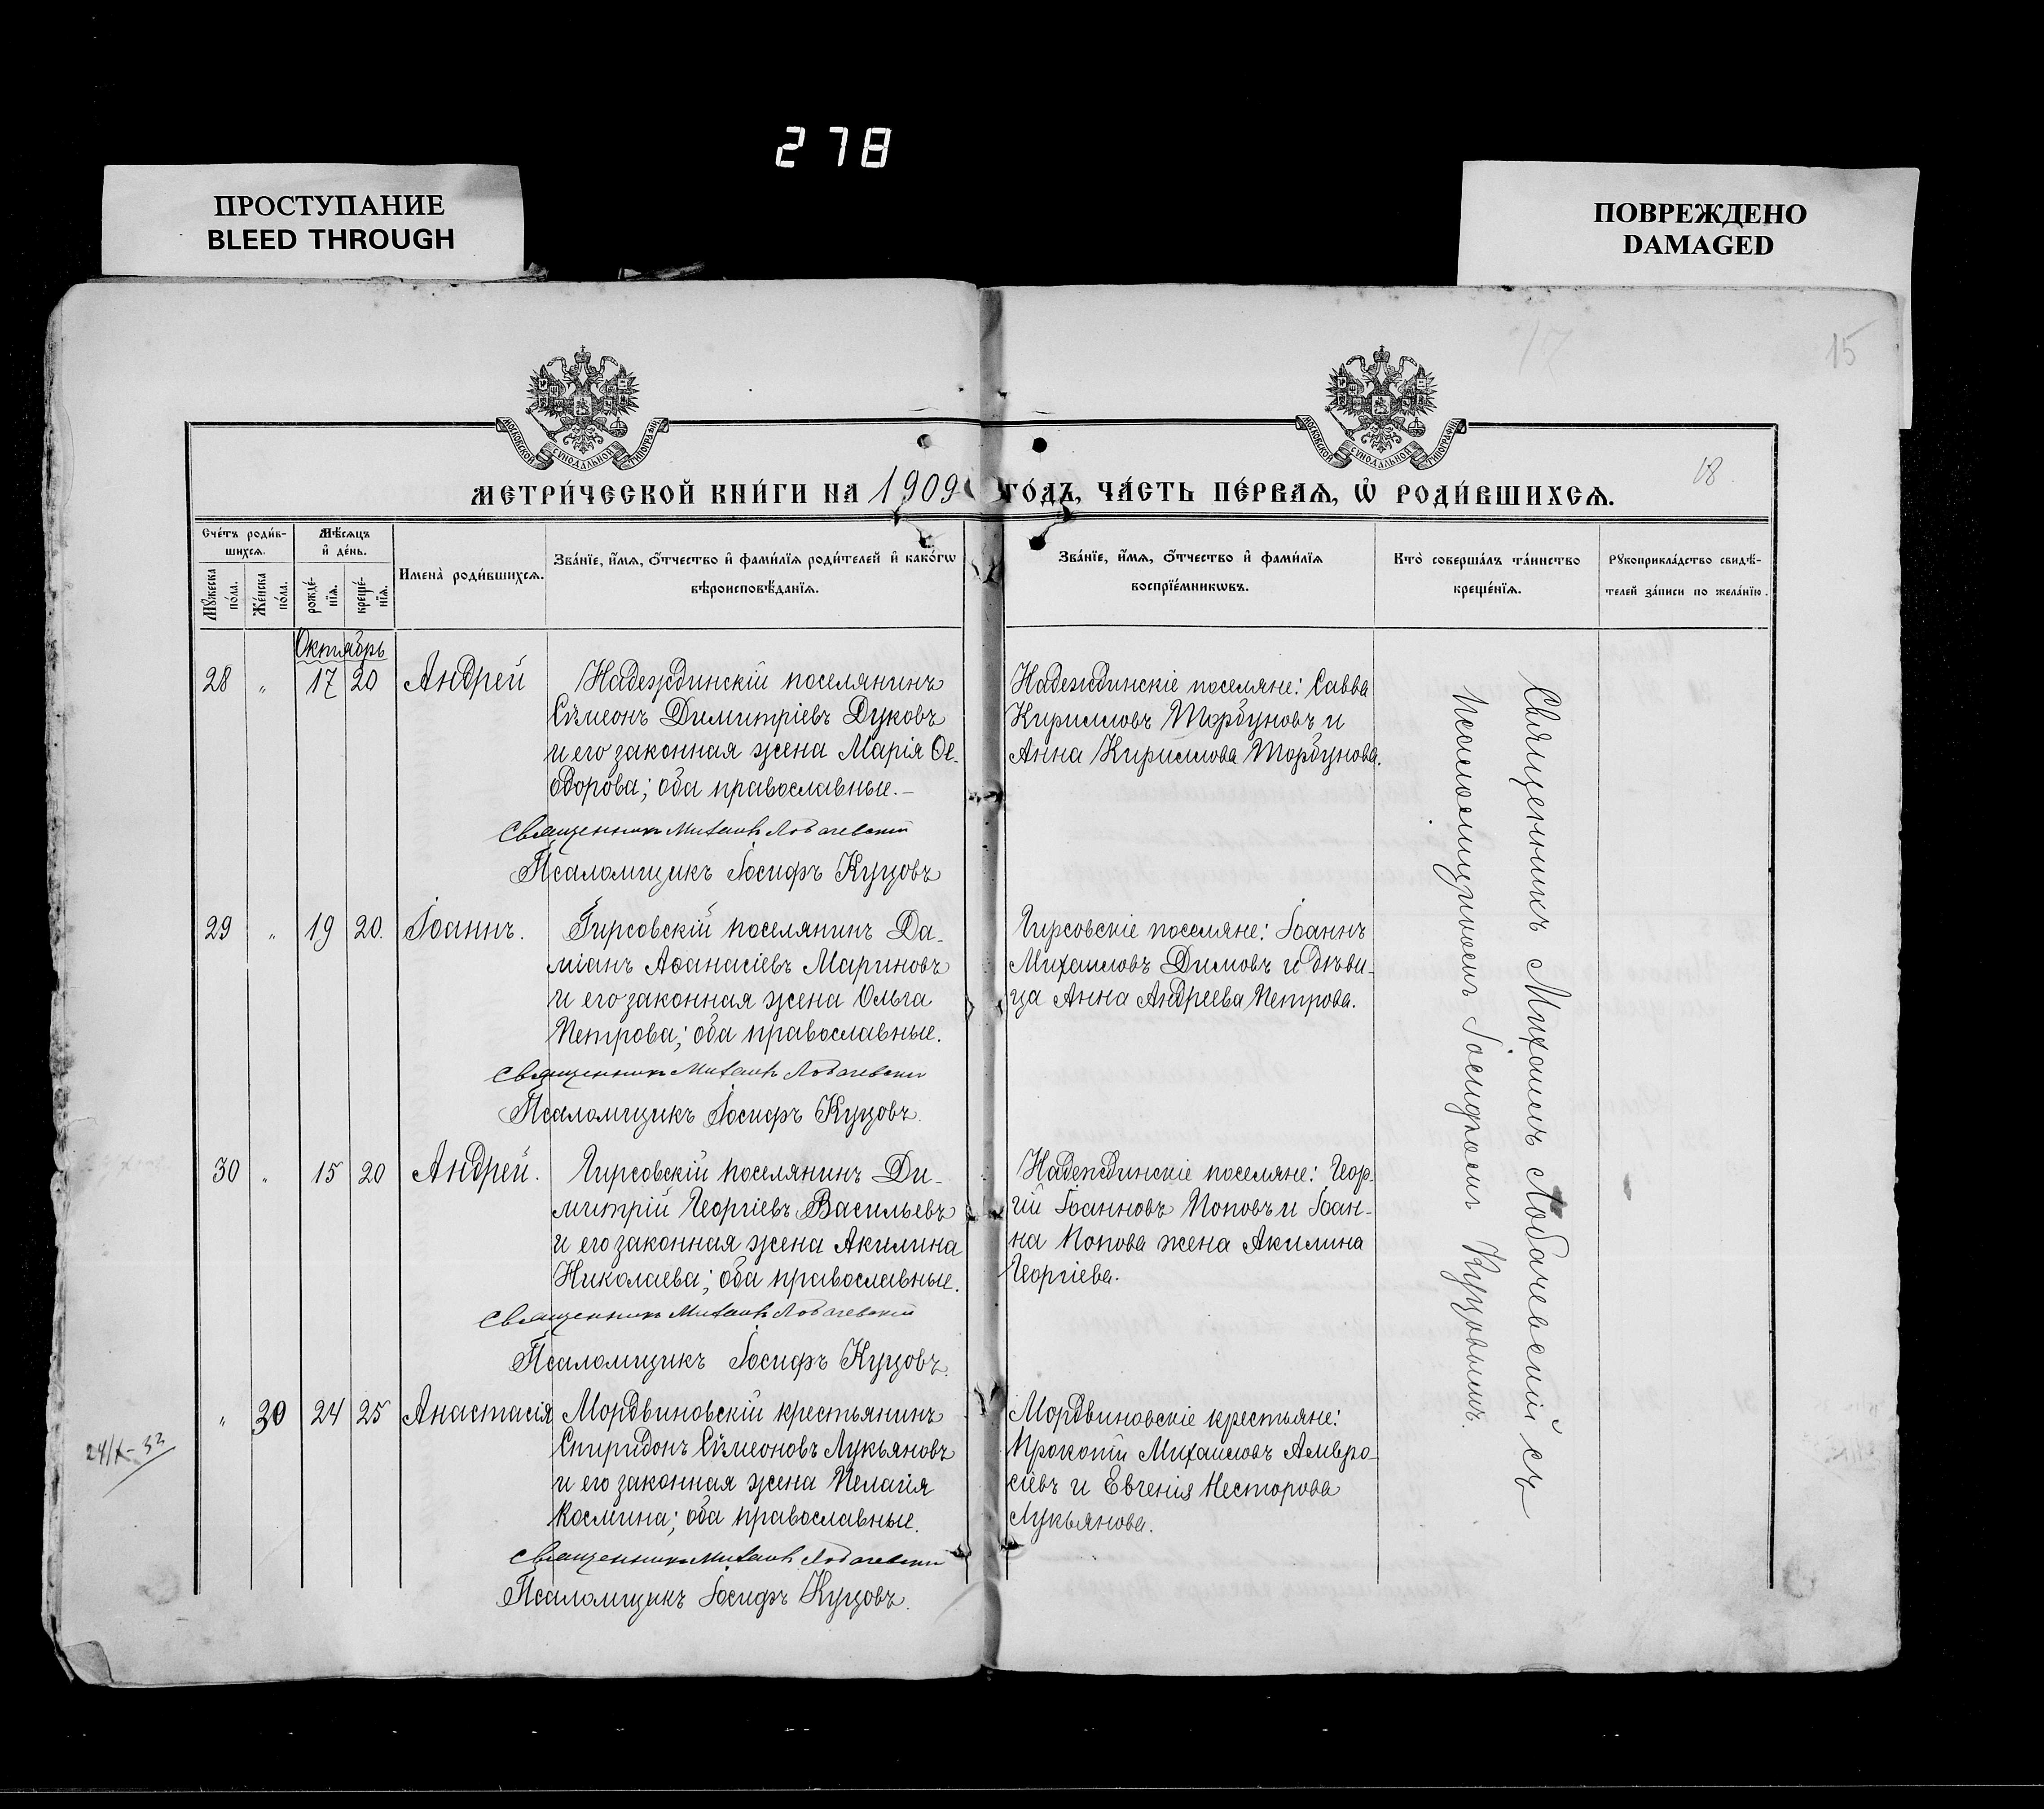 278
ПРОСТУПАНИЕ
BLEED THROUGH
ПОВРЕЖДЕНО
DAMAGED
15
18
МОСКОВСКОЙ СУНОДАЛЬНОЙ ТИПОГРАФІИ
МОСКОВСКОЙ СУНОДАЛЬНОЙ ТИПОГРАФІИ
МЕТРИ́ЧЕСКОЙ КНИ́ГИ НА 1909 ГО́ДЪ, ЧА́СТЬ ПЕ́РВАЯ, Ѡ҆ РОДИ́ВШИХСЯ.
Сче́тъ роди́в-
шихся.
Мѣ́сяцъ
и҆ де́нь.
Мꙋ́жеска по́ла.
Же́нска по́ла.
рожде́-
нїя.
креще́-
нїя.
Имена̀ роди́вшихся.
Зва́нїе, и҆́мя, ѻ҆́тчество и҆ фами́лїя роди́телей и҆ како́гѡ
вѣроисповѣ́данїя.
Зва́нїе, и҆́мя, ѻ҆́тчество и҆ фами́лїя
воспрїе́мникѡвъ.
Кто̀ соверша́лъ та́инство
креще́нїя.
Рꙋкоприкла́дство свидѣ́-
телей за́писи по жела́нїю.
Октябрь
28 „ 17 20 Андрей
Надеждинскій поселянинъ
Сѵмеонъ Димитріевъ Дуковъ
и его законная жена Марія Ѳе-
одорова; оба православные.–
Священникъ Михаилъ Лобачевскій
Псаломщикъ Іосифъ Куцовъ
Надеждинскіе поселяне: Савва
Кирилловъ Торбуновъ и
Анна Кириллова Торбунова.
29 „ 19 20. Іоаннъ.
Гирсовскій поселянинъ Да-
міанъ Аѳанасіевъ Мариновъ
и его законная жена Ольга
Петрова; оба православные.
Священникъ Михаилъ Лобачевскій
Псаломщикъ Іосифъ Куцовъ.
Гирсовскіе поселяне: Іоаннъ
Михаиловъ Димовъ и дѣви-
ца Анна Андреева Петрова.
30 „ 15 20 Андрей.
Гирсовскій поселянинъ Ди-
митрій Георгіевъ Васильевъ
и его законная жена Акилина
Николаева; оба православные.
Священникъ Михаилъ Лобачевскій
Псаломщикъ Іосифъ Куцовъ.
Надеждинскіе поселяне: Геор-
гій Іоанновъ Поповъ и Іоан-
на Попова жена Акилина
Георгіева.
„ 30 24 25 Анастасія
Мордвиновскій крестьянинъ
Спиридонъ Сѵмеоновъ Лукьяновъ
и его законная жена Пелагія
Космина; оба православные.
Священникъ Михаилъ Лобачевскій
Псаломщикъ Іосифъ Куцовъ.
Мордвиновскіе крестьяне:
Прокопій Михаиловъ Амвро-
сіевъ и Евгенія Несторова
Лукьянова.
Священникъ Михаилъ Лобачевскій съ
Псаломщикомъ Іосифомъ Куцовымъ.